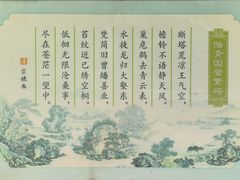 偕青园登繁塔
断塔荒凉王气空，
檐铃不语静天风。
巢危鹳去青云表，
水徙龙归大壑东。
梵简旧曾繙善业，
苔纹近已绣空桐。
低徊无限沧桑事，
尽在苍茫一望中。
宗稷辰